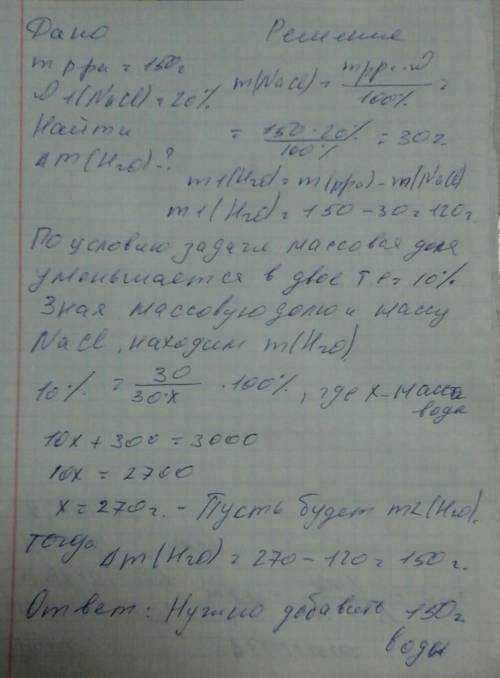 Дано Решение
m рра = 150г
ω1(NaCl) = 20% m(NaCl) = mрра·ω / 100% =
Найти = 150·20% / 100% = 30г.
Δm(H2O)-?
m1(H2O) = m(рра) - m(NaCl)
m1(H2O) = 150 - 30 = 120г
По условию задачи массовая доля
уменьшается в двое т е = 10%
Зная массовую долю и массу
NaCl, находим m(H2O)
10% = 30 / 30·x · 100%, где x - масса
вода
10x + 300 = 3000
10x = 2700
x = 270г. - Пусть будет m2(H2O),
тогда
Δm(H2O) = 270 - 120 = 150г.
Ответ: Нужно добавить 150г.
воды